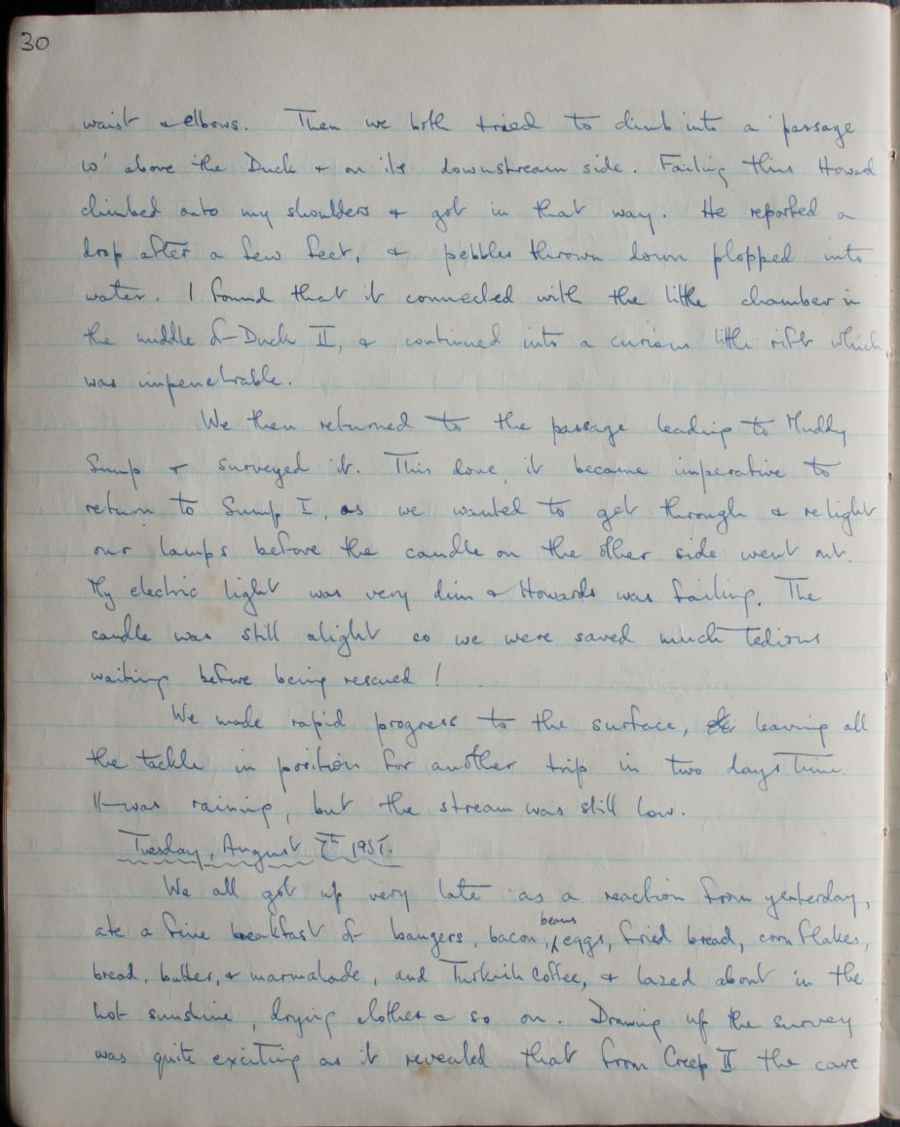 30
waist & elbows. Then we both tried to climb into a passage
10' above the Duck & on its downstream side. Failing this Howard
climbed onto my shoulders & got in that way. He reported a
drop after a few feet, & pebbles thrown down plopped into
water. I found that it connected with the little chamber in
the middle of Duck II, & continued into a curious little rift which
was impenetrable.
We then returned to the passage leading to Muddy
Sump & surveyed it. This done, it became imperative to
return to Sump I, as we wanted to get through & relight
our lamps before the candle on the other side went out.
My electric light was very dim & Howards was failing. The
candle was still alight so we were saved much tedious
waiting before being rescued!
We made rapid progress to the surface, leaving all
the tackle in position for another trip in two days time.
It was raining, but the stream was still low.
Tuesday, August 7th 1951.
We all got up very late as a reaction from yesterday,
ate a fine breakfast of bangers, bacon, beans, eggs, fried bread, corn flakes,
bread, butter, & marmalade, and Turkish Coffee, & lazed about in the
hot sunshine, drying clothes & so on. Drawing up the survey
was quite exciting as it revealed that from Creep II the cave